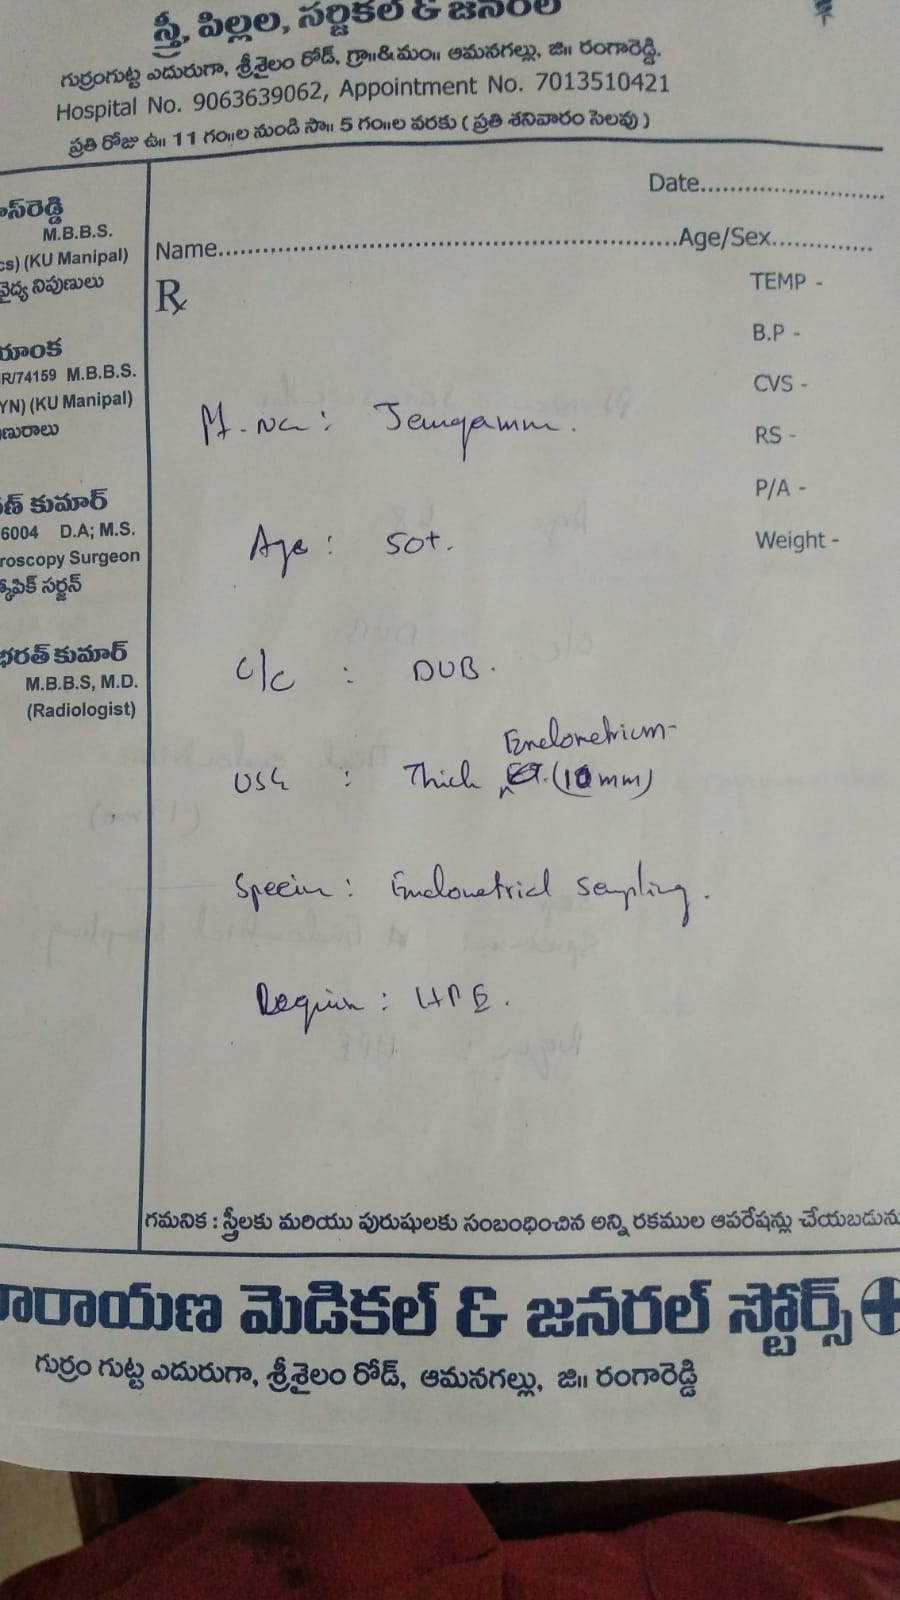 స్త్రీ, పిల్లల, సర్జికల్ & జనరల్
గుర్రంగుట్ట ఎదురుగా, శ్రీశైలం రోడ్, గ్రా॥&మం॥ ఆమనగల్లు, జి॥ రంగారెడ్డి.
Hospital No. 9063639062, Appointment No. 7013510421
ప్రతి రోజు ఉ॥ 11 గం॥ల నుండి సా॥ 5 గం॥ల వరకు ( ప్రతి శనివారం సెలవు )
Date
Name Age/Sex
℞
TEMP -
B.P -
CVS -
RS -
P/A -
Weight -
M.B.B.S.
(KU Manipal)
వైద్య నిపుణులు
R/74159 M.B.B.S.
YN) (KU Manipal)
కుమార్
6004 D.A; M.S.
roscopy Surgeon
సర్జన్
భరత్ కుమార్
M.B.B.S, M.D.
(Radiologist)
Age : 50+.
C/c : DUB.
Endometrium-
USG : Thick (10mm)
Endometrial Sampling.
HPE.
గమనిక : స్త్రీలకు మరియు పురుషులకు సంబంధించిన అన్ని రకముల ఆపరేషన్లు చేయబడును
నారాయణ మెడికల్ & జనరల్ స్టోర్స్
గుర్రం గుట్ట ఎదురుగా, శ్రీశైలం రోడ్, ఆమనగల్లు, జి॥ రంగారెడ్డి